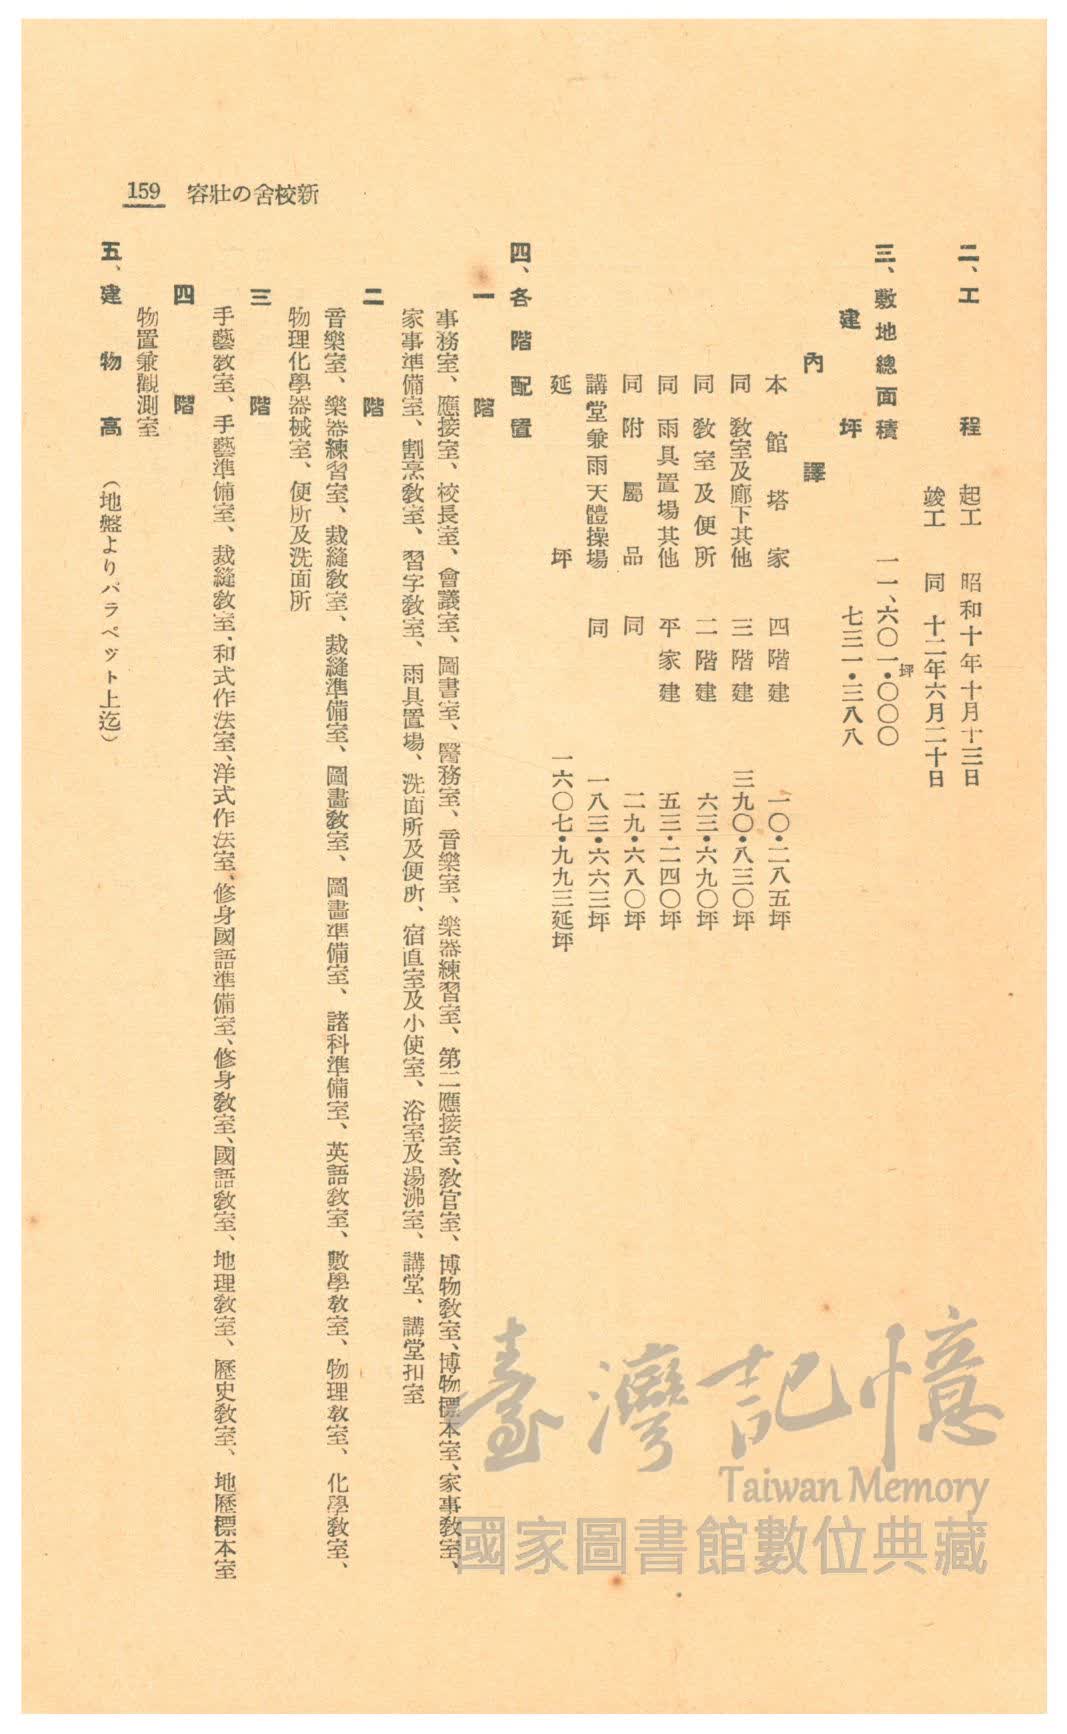 新校舍の壯容 159
二、工程 起工 昭和十年十月十三日
竣工 同 十二年六月二十日
三、敷地總面積 一一、六〇一・〇〇〇坪
建坪 七三一・三八八
內譯
本館塔家 四階建 一〇・二八五坪
同 教室及廊下其他 三階建 三九〇・八三〇坪
同 教室及便所 二階建 六三・六九〇坪
同 雨具置場其他 平家建 五三・二四〇坪
同附屬品 同 二九・六八〇坪
講堂兼雨天體操場 同 一八三・六六三坪
延坪 一六〇七・九九三延坪
四、各階配置
一階
事務室、應接室、校長室、會議室、圖書室、醫務室、音樂室、樂器練習室、第二應接室、教官室、博物教室、博物標本室、家事教室、
家事準備室、割烹教室、習字教室、雨具置場、洗面所及便所、宿直室及小使室、浴室及湯沸室、講堂、講堂扣室
二階
音樂室、樂器練習室、裁縫教室、裁縫準備室、圖畵教室、圖畵準備室、諸科準備室、英語教室、數學教室、物理教室、化學教室、
物理化學器械室、便所及洗面所
三階
手藝教室、手藝準備室、裁縫教室・和式作法室、洋式作法室、修身國語準備室、修身教室、國語教室、地理教室、歷史教室、地歷標本室
四階
物置兼觀測室
五、建物高 （地盤よりパラペット上迄）
臺灣記憶
Taiwan Memory
國家圖書館數位典藏